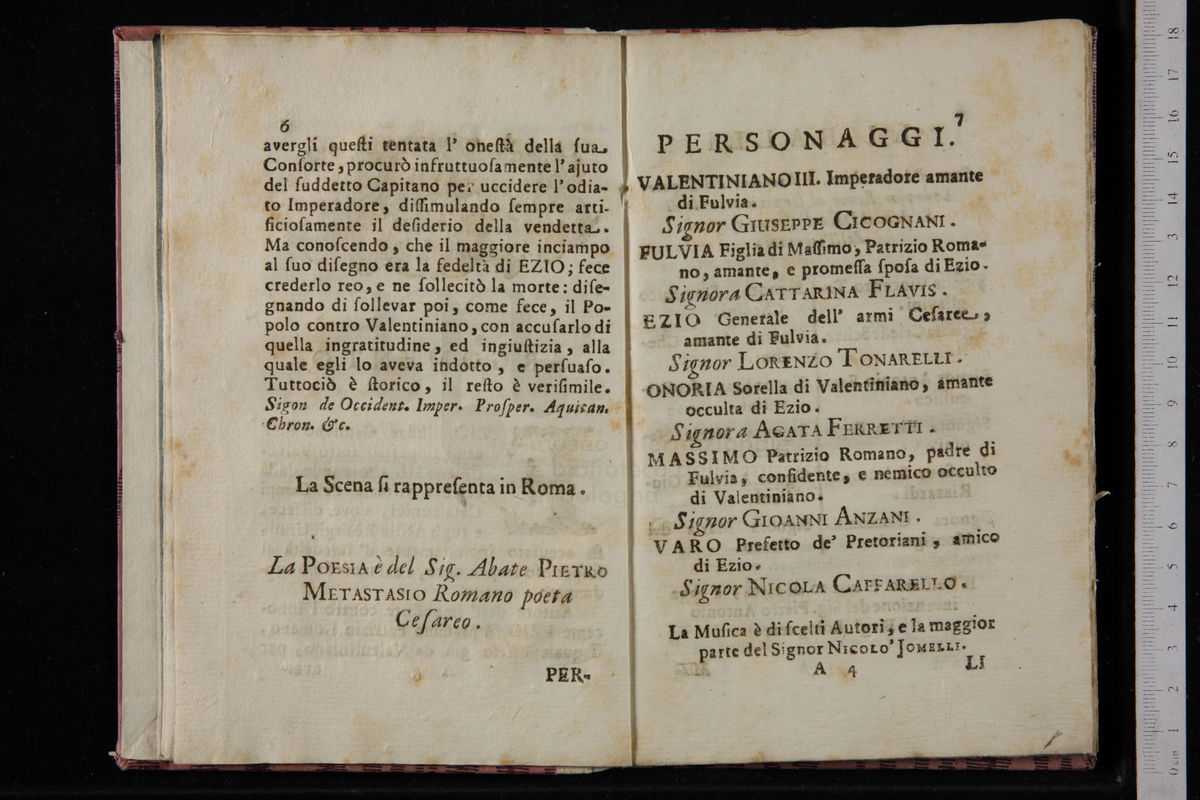 6
avergli queſti tentata l' oneſtà della ſua
Conſorte, procurò infruttuoſamente l'ajuto
del ſuddetto Capitano per uccidere l'odia-
to Imperadore, diſſimulando ſempre arti-
ficioſamente il deſiderio della vendetta.
Ma conoſcendo, che il maggiore inciampo
al ſuo diſegno era la fedeltà di EZIO; fece
crederlo reo, e ne ſollecitò la morte: diſe-
gnando di ſollevar poi, come fece, il Po-
polo contro Valentiniano, con accuſarlo di
quella ingratitudine, ed ingiuſtizia, alla
quale egli lo aveva indotto, e perſuaſo.
Tuttociò è ſtorico, il reſto è veriſimile.
Sigon de Occident. Imper. Proſper. Aquitan.
Chron. &c.
La Scena ſi rappreſenta in Roma.
La POESIA è del Sig. Abate PIETRO
METASTASIO Romano poeta
Ceſareo.
PER-
7
PERSONAGGI.
VALENTINIANO III. Imperadore amante
di Fulvia.
Signor GIUSEPPE CICOGNANI.
FULVIA Figlia di Maſſimo, Patrizio Roma-
no, amante, e promeſſa ſpoſa di Ezio.
Signora CATTARINA FLAVIS.
EZIO Generale dell' armi Ceſaree,
amante di Fulvia.
Signor LORENZO TONARELLI.
ONORIA Sorella di Valentiniano, amante
occulta di Ezio.
Signora AGATA FERRETTI.
MASSIMO Patrizio Romano, padre di
Fulvia, confidente, e nemico occulto
di Valentiniano.
Signor GIOANNI ANZANI.
VARO Prefetto de' Pretoriani, amico
di Ezio.
Signor NICOLA CAFFARELLO.
La Muſica è di ſcelti Autori, e la maggior
parte del Signor NICOLO' JOMELLI.
A 4
LI
0 cm 1 2 3 4 5 6 7 8 9 10 11 12 13 14 15 16 17 18